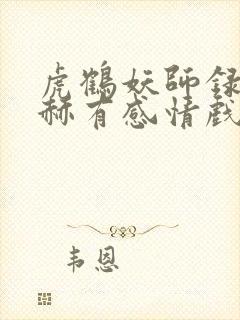 虎鶴妖師録
赫有感情戲
韦恩